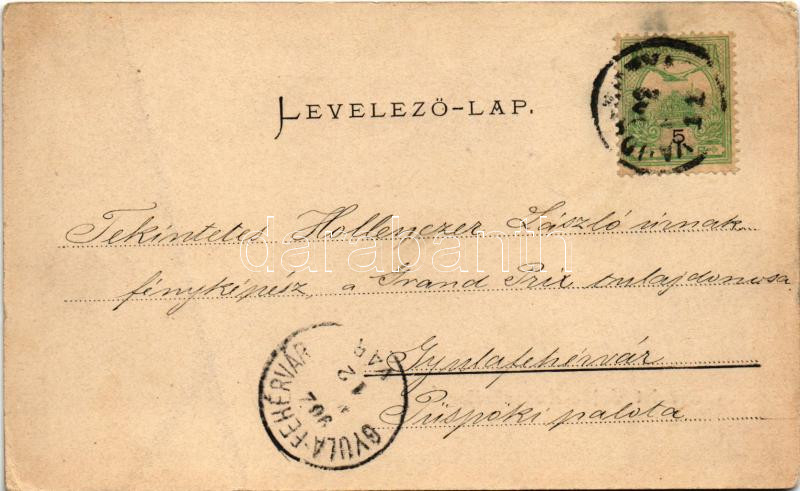 LEVELEZŐ-LAP.
5
Tekintetes Hollenczer László úrnak
fényképész, a Grand Prix tulajdonosa
Gyulafehérvár
Püspöki palota
darabanth
GYULA-FEHÉRVÁR
907
12